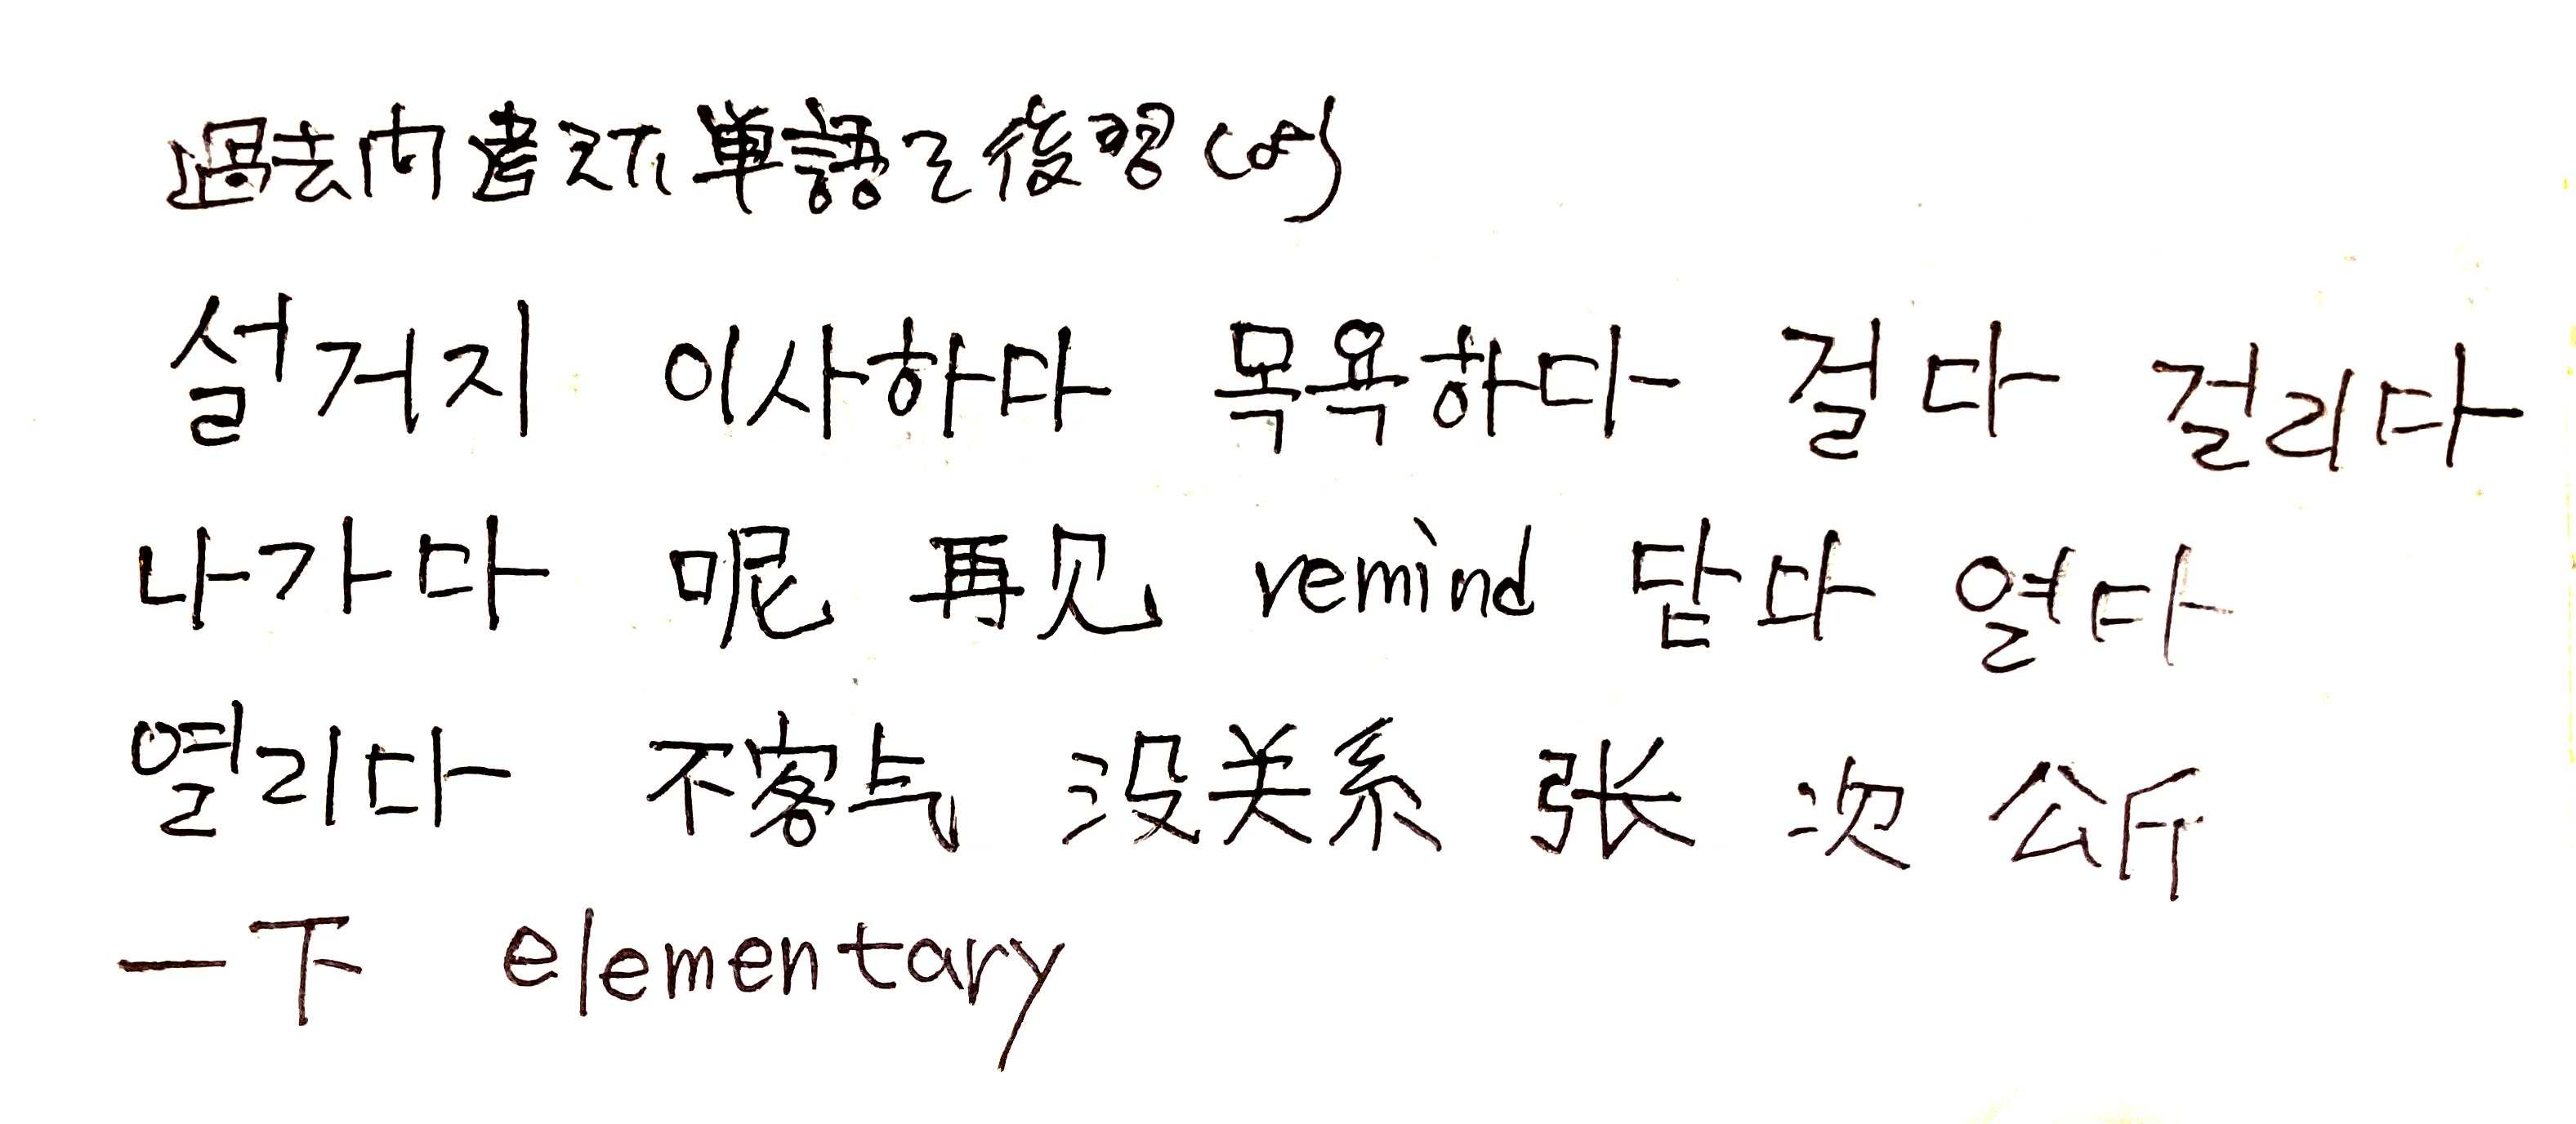 過去 単語
설거지 이사하다 목욕하다 걸다 걸리다
나가다 呢 再见 remind 닫다 열다
열리다 不客气 没关系 张 次 公斤
一下 elementary